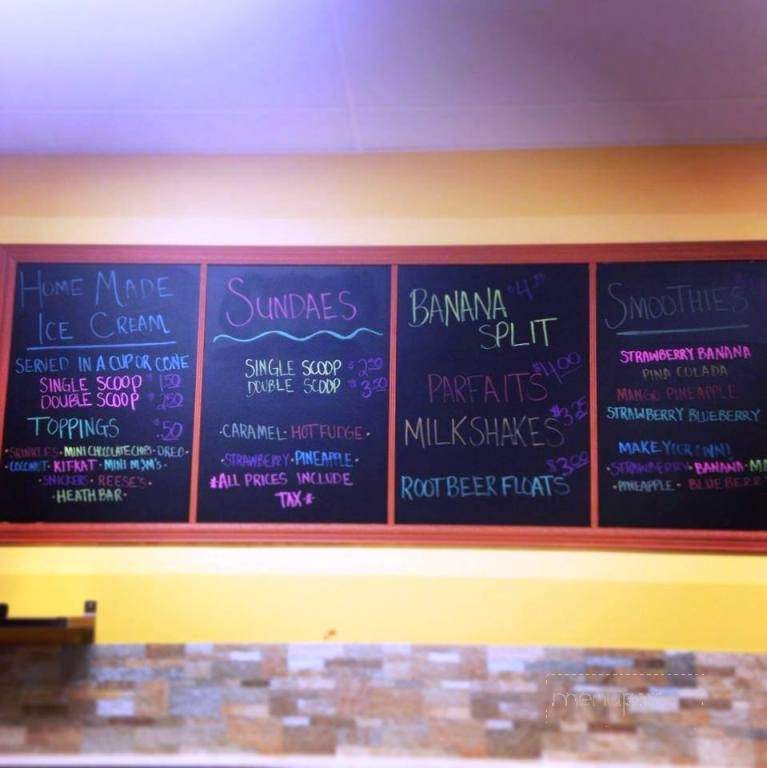 HOME MADE
ICE CREAM
SERVED IN A CUP OR CONE
SINGLE SCOOP $1.50
DOUBLE SCOOP $2.50
TOPPINGS $.50
SPRINKLES · MINI CHOCOLATE CHIPS · OREO ·
COCONUT · KIT-KAT · MINI M&M'S ·
· SNICKERS · REESE'S ·
· HEATH BAR ·
SUNDAES
SINGLE SCOOP
DOUBLE SCOOP
· CARAMEL · HOT FUDGE ·
· STRAWBERRY · PINEAPPLE ·
*ALL PRICES INCLUDE
TAX*
BANANA
SPLIT
PARFAITS $4.00
MILKSHAKES $3.75
ROOTBEER FLOATS $3.00
SMOOTHIES
STRAWBERRY BANANA
PINA COLADA
MANGO PINEAPPLE
STRAWBERRY BLUEBERRY
MAKE YOUR OWN!
· STRAWBERRY · BANANA ·
· PINEAPPLE · BLUEBERR